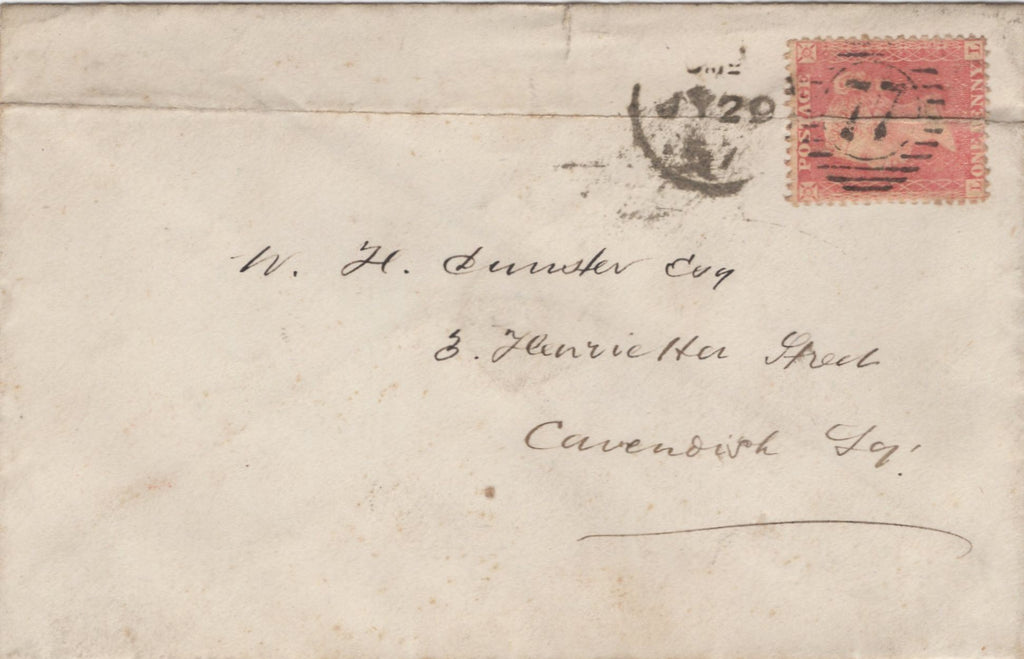 JY 29
77
POSTAGE
ONE PENNY
L L
W. H. Dunster Esq
3. Henrietta Street
Cavendish Sq.